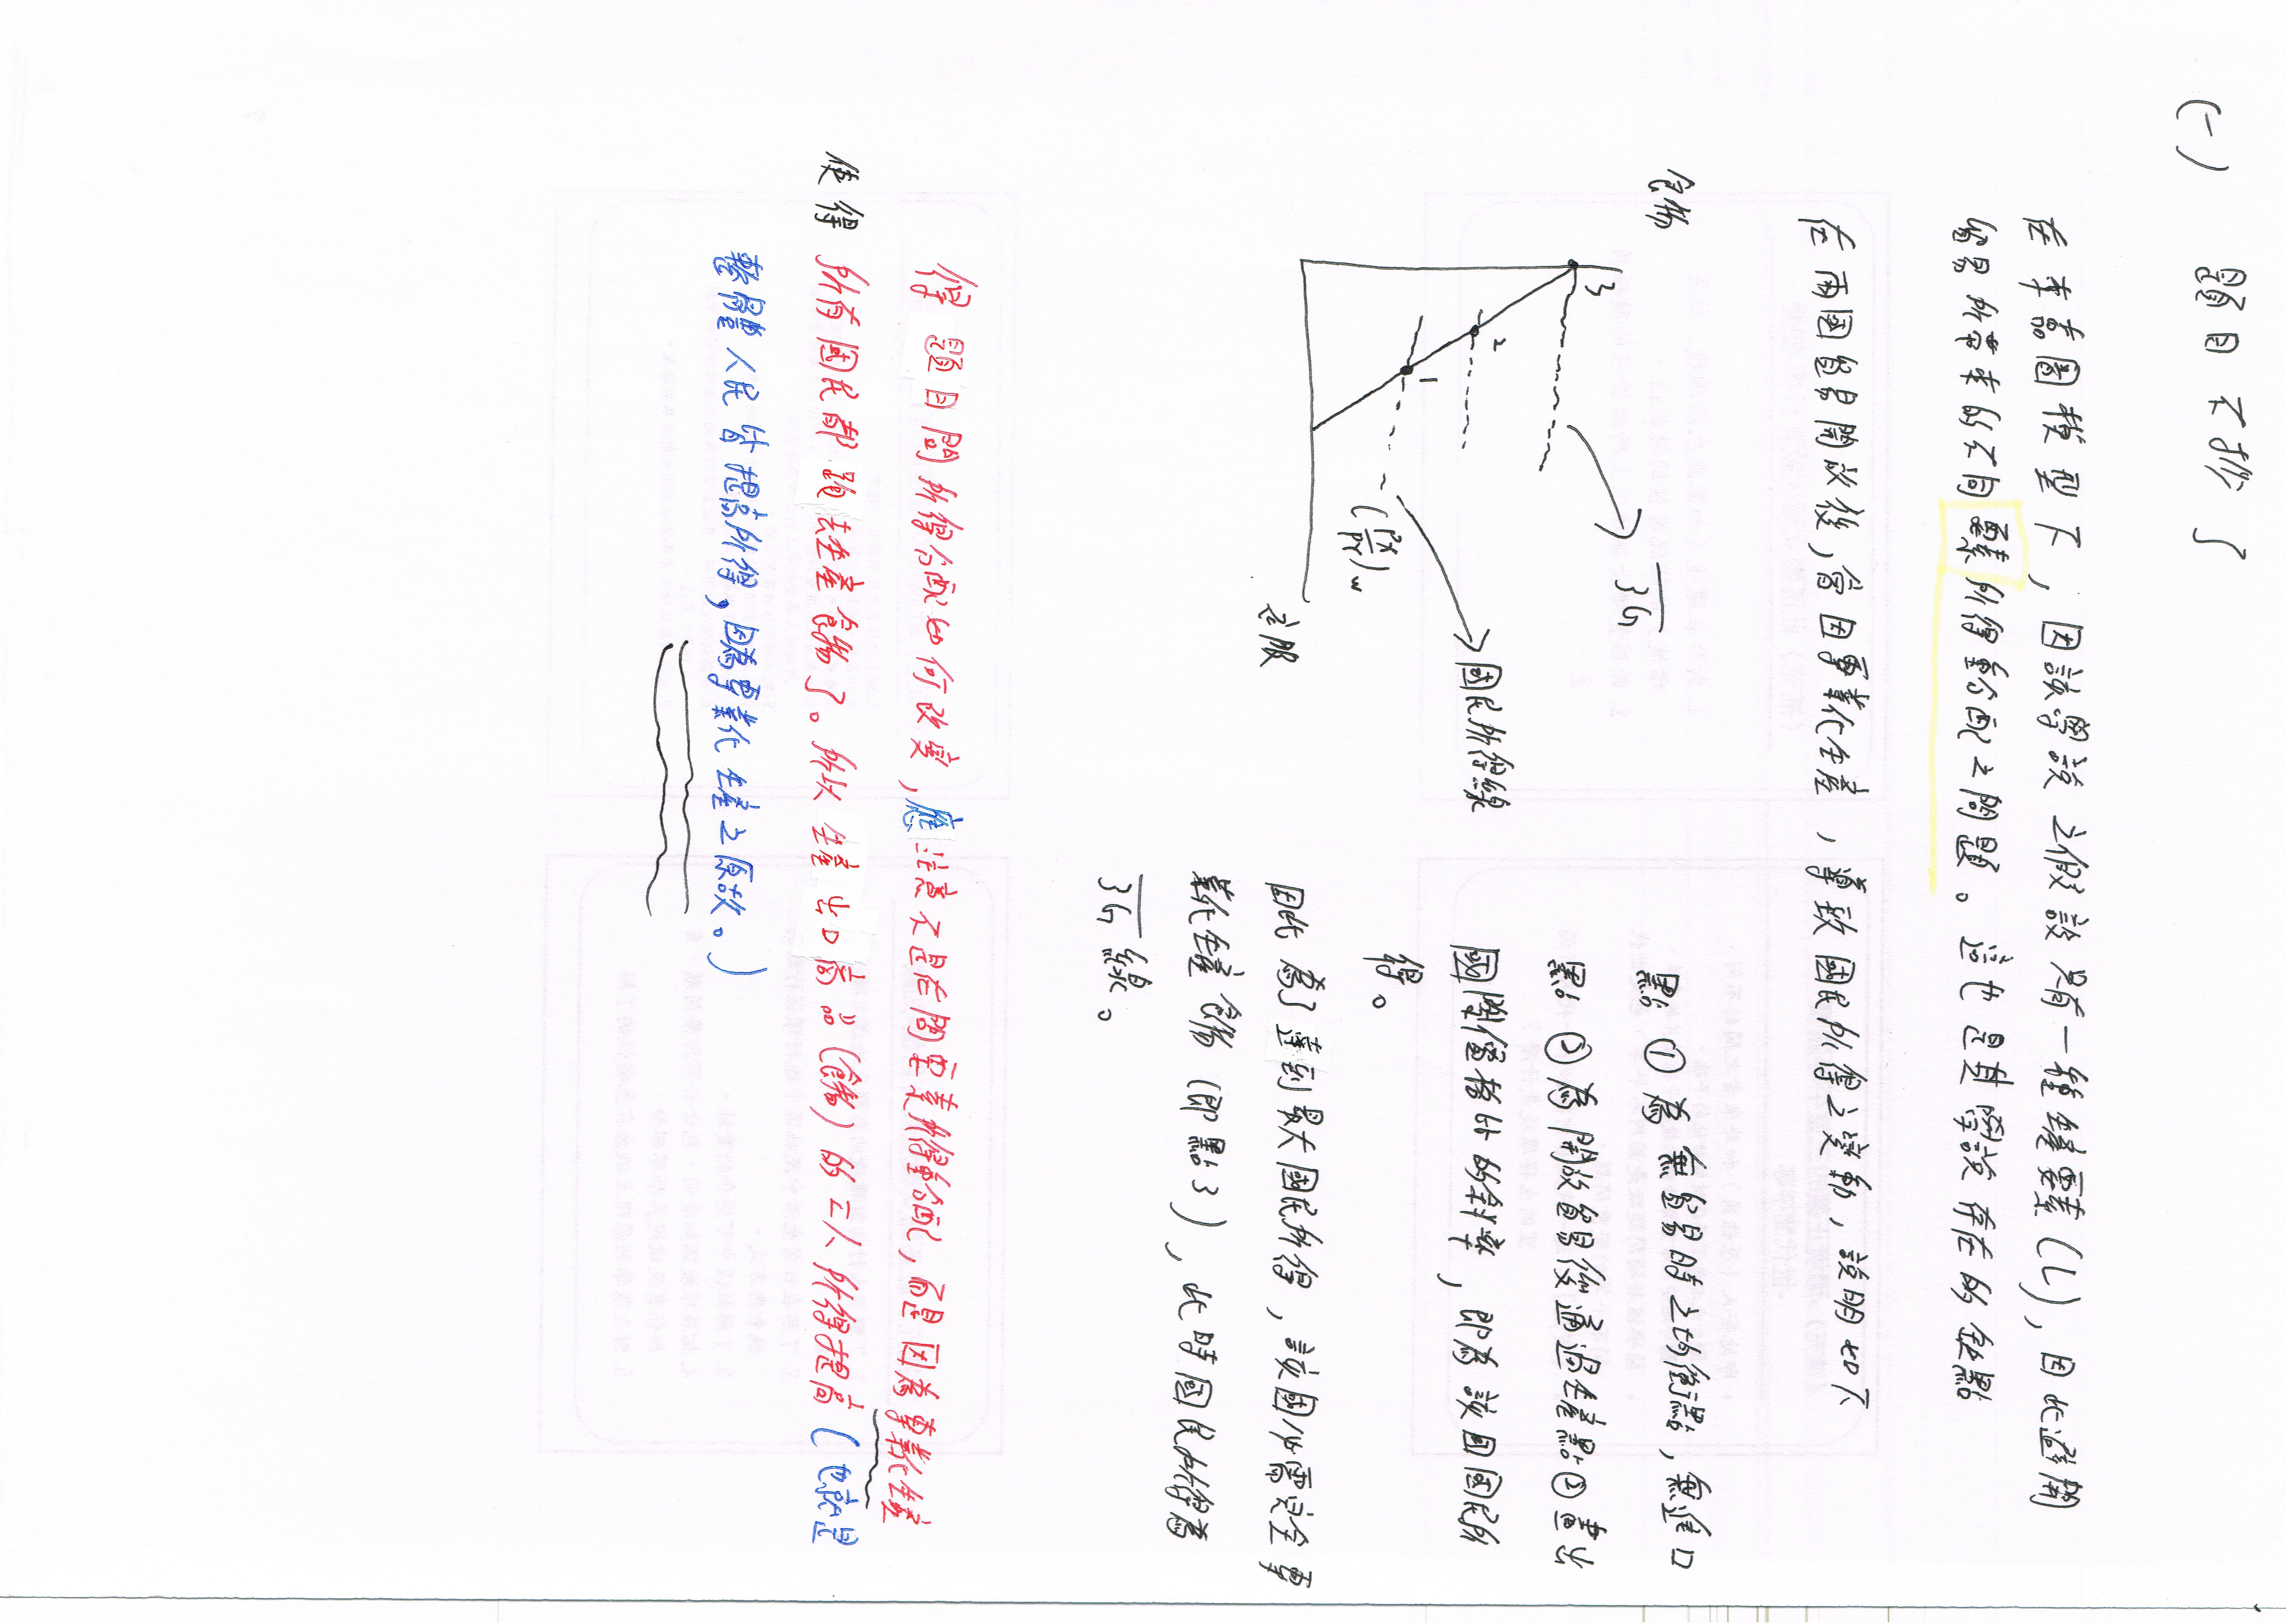 (一) 題目不抄
在李嘉圖模型下，因該學說之假設只有一種生產要素(L)，因此避開
貿易所帶來的不同要素所得重分配之問題。這也是其學說存在的缺點
在兩國貿易開放後，會因專業化生產，導致國民所得之變動，說明如下
食物
3
2
1
(Px/Py)w
衣服
3G
國民所得線
點①為無貿易時之均衡點，無進口
點②為開放貿易後通過生產點②畫出
國際價格比的斜率，即為該國國民所
得。
因此為了達到最大國民所得，該國必需完全專
業化生產食物(即點3)，此時國民所得為
3G線。
得題目問所得分配如何改變，應注意不是在問要素所得重分配，而是因為專業化生產
使得所有國民都跑去生產食物了。所以生產出口商品(食物)的工人所得提高(也就是
整體人民皆提高所得，因為專業化生產之原故。)